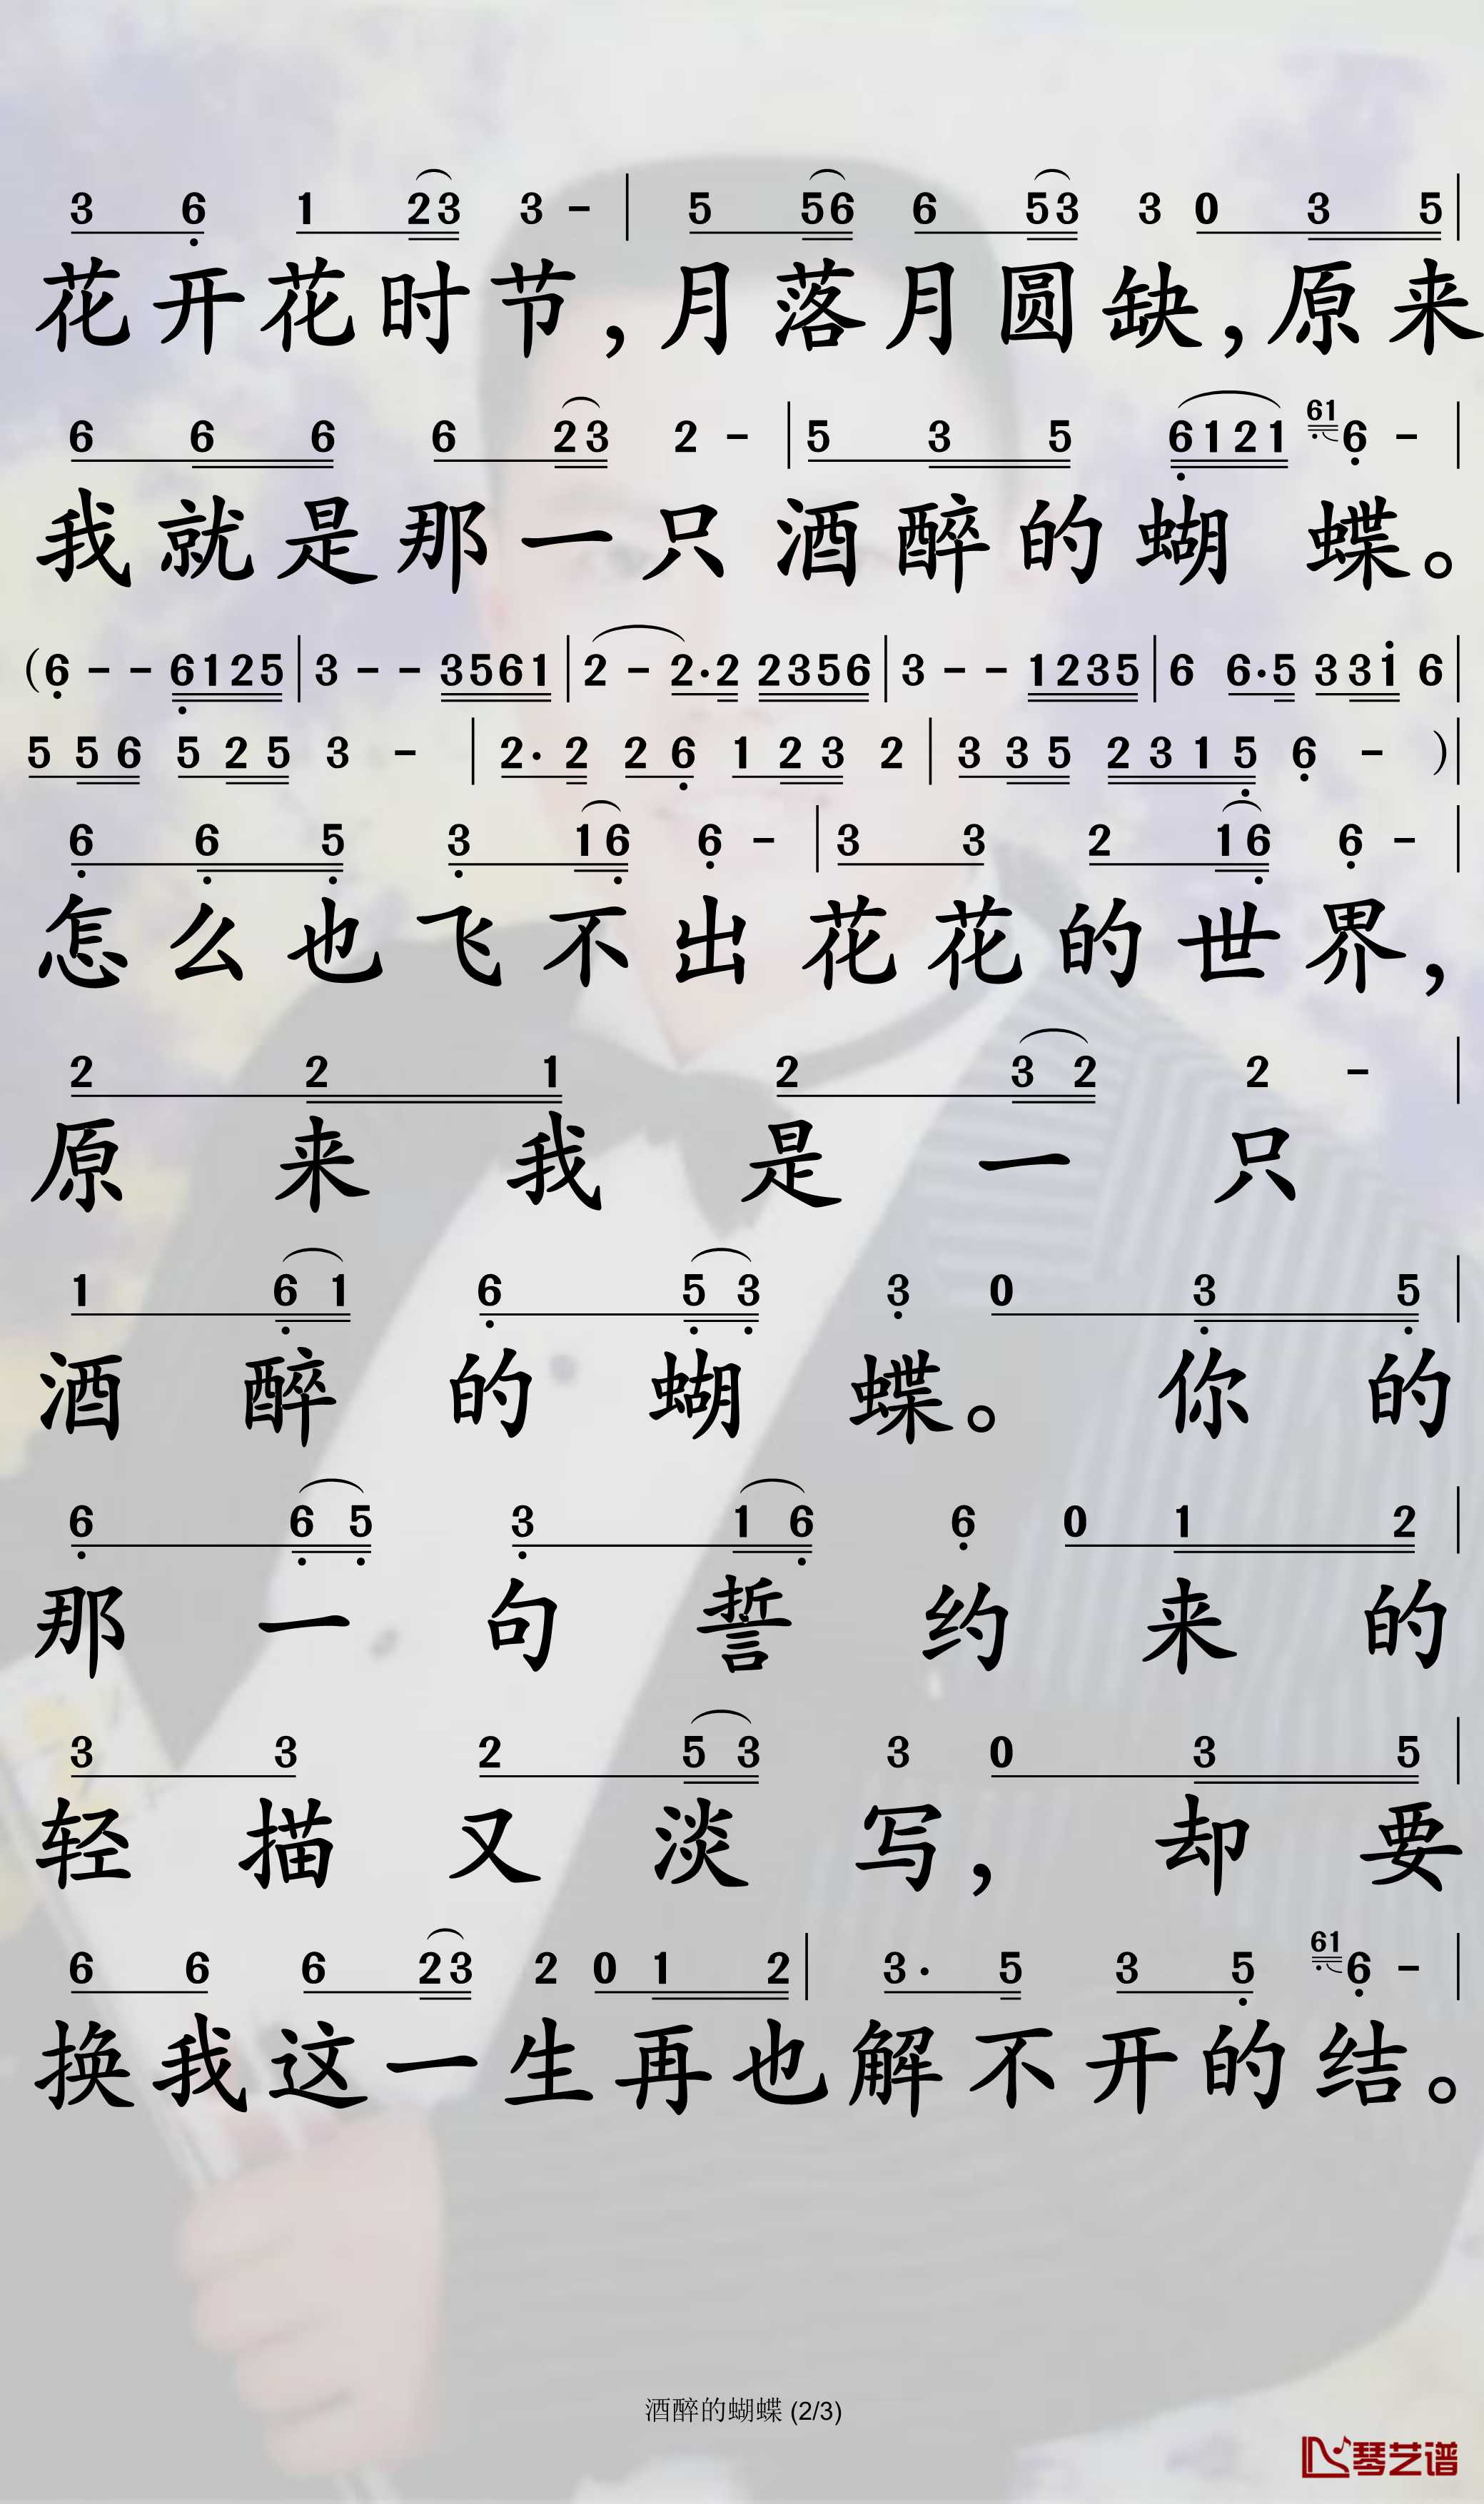 3 6 1 23 3 - | 5 56 6 53 3 0 3 5 |
花开花时节，月落月圆缺，原来
6 6 6 6 23 2 - | 5 3 5 6121 61 6 - |
我就是那一只酒醉的蝴蝶。
(6 - - 6125 | 3 - - 3561 | 2 - 2·2 2356 | 3 - - 1235 | 6 6·5 331 6 |
5 56 5 25 3 - | 2· 2 2 6 1 23 2 | 3 35 2315 6 - ) |
6 6 5 3 16 6 - | 3 3 2 16 6 - |
怎么也飞不出花花的世界，
2 2 1 2 3 2 2 - |
原来我是一只
1 6 1 6 5 3 3 0 3 5 |
酒醉的蝴蝶。你的
6 6 5 3 1 6 6 0 1 2 |
那一句誓约来的
3 3 2 5 3 3 0 3 5 |
轻描又淡写，却要
6 6 6 23 2 0 1 2 | 3· 5 3 5 61 6 - |
换我这一生再也解不开的结。
酒醉的蝴蝶 (2/3)
琴艺谱